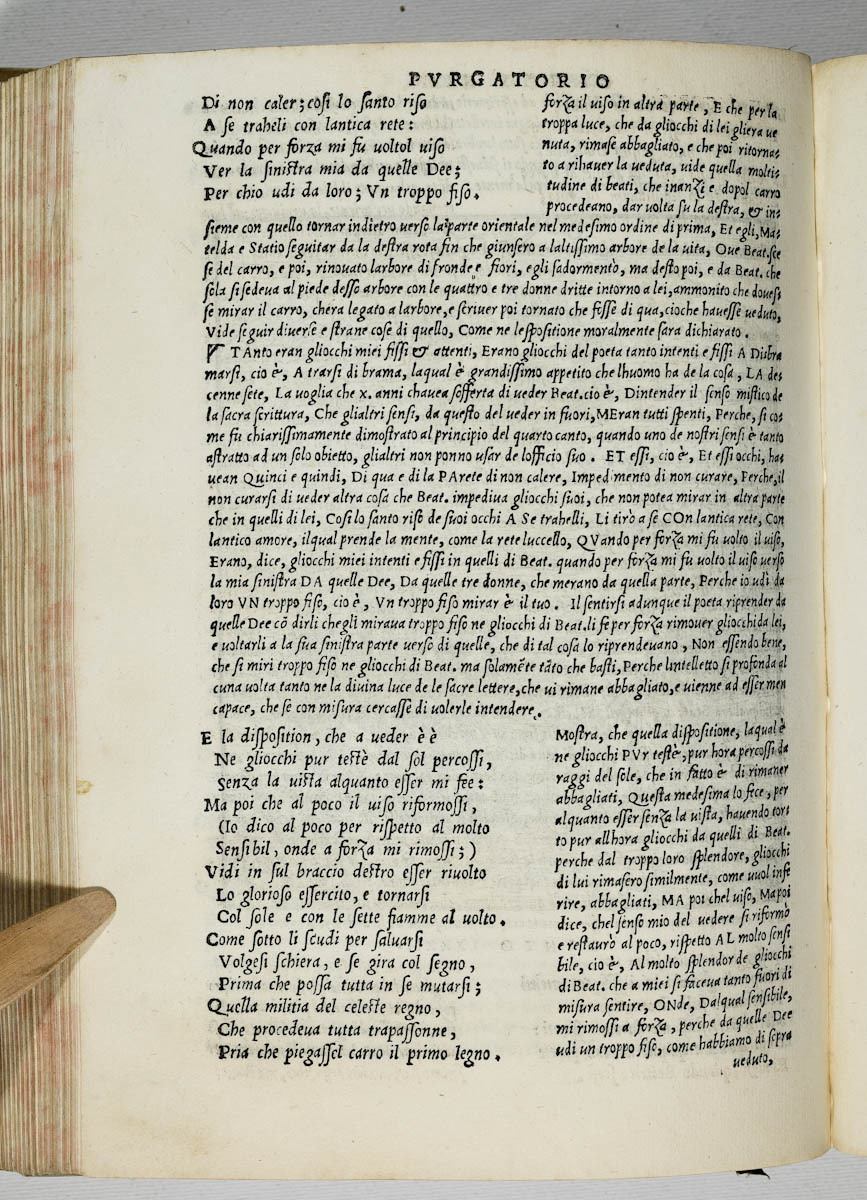 PVRGATORIO
Di non caler; cosi lo santo riso
A se traheli con lantica rete:
Quando per forza mi fu voltol uiso
Ver la sinistra mia da quelle Dee;
Per chio udi da loro; Vn troppo fiso.
forza il uiso in altra parte, E che per la
troppa luce, che da gliocchi di lei gliera ue
nuta, rimase abbagliato, e che poi ritorna-
to a rihauer la ueduta, uide quella molti-
tudine di beati, che inanzi e dopol carro
procedeano, dar uolta su la destra, & in-
sieme con quello tornar indietro uerso la parte orientale nel medesimo ordine di prima, Et egli, Ma-
telda e Statio seguitar da la destra rota fin che giunsero a laltissimo arbore de la uita, Oue Beat. sce
se del carro, e poi, rinouato larbore di fronde e fiori, egli sadormentò, ma desto poi, e da Beat. che
sola si sedeua al piede desso arbore con le quattro e tre donne dritte intorno a lei, ammonito che doues-
se mirar il carro, chera legato a larbore, e scriuer poi tornato che fosse di qua, cioche hauesse ueduto,
Vide seguir diuerse e strane cose di quello, Come ne lespositione moralmente sara dichiarato.
TAnto eran gliocchi miei fissi & attenti, Erano gliocchi del poeta tanto intenti e fissi A Disbra
marsi, cio è, A trarsi di brama, laqual è grandissimo appetito che lhuomo ha de la cosa, LA de
cenne sete, La uoglia che x. anni chauea sofferta di ueder Beat. cio è, Dintender il senso mistico de
la sacra scrittura, Che glialtri sensi, da questo del ueder in fuori, MEran tutti spenti, Perche, si co-
me fu chiarissimamente dimostrato al principio del quarto canto, quando uno de nostri sensi è tanto
astratto ad un solo obietto, glialtri non ponno usar de lofficio suo. ET essi, cio è, Et essi occhi, ha-
uean Quinci e quindi, Di qua e di la PArete di non calere, Impedimento di non curare, Perche, il
non curarsi di ueder altra cosa che Beat. impediua gliocchi suoi, che non potea mirar in altra parte
che in quelli di lei, Cosi lo santo riso de suoi occhi A Se trahelli, Li tirò a se COn lantica rete, Con
lantico amore, ilqual prende la mente, come la rete luccello, QVando per forza mi fu uolto il uiso,
Erano, dice, gliocchi miei intenti e fissi in quelli di Beat. quando per forza mi fu uolto il uiso uerso
la mia sinistra DA quelle Dee, Da quelle tre donne, che merano da quella parte, Perche io udi da
loro VN troppo fiso, cio è, Vn troppo fiso mirar è il tuo. Il sentirsi adunque il poeta riprender da
quelle Dee cō dirli chegli miraua troppo fiso ne gliocchi di Beat. li fe per forza rimouer gliocchi da lei,
e uoltarli a la sua sinistra parte uerso di quelle, che di tal cosa lo riprendeuano, Non essendo bene,
che si miri troppo fiso ne gliocchi di Beat. ma solamēte tāto che basti, Perche lintelletto si profonda al
cuna uolta tanto ne la diuina luce de le sacre lettere, che ui rimane abbagliato, e uienne ad esser men
capace, che se con misura cercasse di uolerle intendere.
E la disposition, che a ueder è è
Ne gliocchi pur testè dal sol percossi,
Senza la uista alquanto esser mi fee:
Ma poi che al poco il uiso riformossi,
(Io dico al poco per rispetto al molto
Sensibil, onde a forza mi rimossi;)
Vidi in sul braccio destro esser riuolto
Lo glorioso essercito, e tornarsi
Col sole e con le sette fiamme al uolto.
Come sotto li scudi per saluarsi
Volgesi schiera, e se gira col segno,
Prima che possa tutta in se mutarsi;
Quella militia del celeste regno,
Che procedeua tutta trapassonne,
Pria che piegassel carro il primo legno.
Mostra, che quella dispositione, laqual è
ne gliocchi PVr testè, pur hora percossi da
raggi del sole, che in fatto è di rimaner
abbagliati, Questa medesima lo fece, per
alquanto esser senza la uista, hauendo tort
to pur allhora gliocchi da quelli di Beat.
perche dal troppo loro splendore, gliocchi
di lui rimasero similmente, come uuol infe
rire, abbagliati, MA poi chel uiso, Ma poi
dice, chel senso mio del uedere si riformò
e restaurò al poco, rispetto AL molto sensi
bile, cio è, Al molto splendor de gliocchi
di Beat. che a miei si faceua tanto fuori di
misura sentire, ONde, Dalqual sensibile,
mi rimossi a forza, perche da quelle Dee
udi un troppo fiso, come habbiamo di sopra
ueduto,